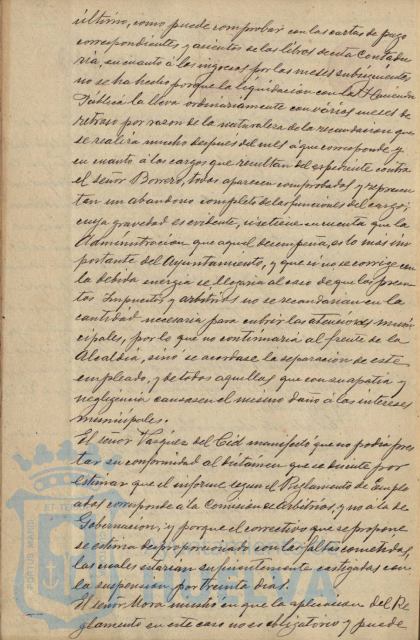 último, como puede comprobar con las cartas de pago
correspondientes y asientos de los libros de esta Contadu-
ría, en cuanto á los ingresos por los meses subsiguientes
no se ha hecho porque la liquidación con la Hacienda
Pública la lleva ordinariamente con varios meses de
retraso por razon de la naturaleza de la recaudacion que
se realiza mucho despues del mes á que corresponde y
en cuanto á los cargos que resultan del expediente contra
el señor Borrero, todos aparecen comprobados y represen-
tan un abandono completo de las funciones del cargo,
cuya gravedad es evidente, si se tiene en cuenta que la
Administración que aquel desempeña, es lo mas im-
portante del Ayuntamiento, y que si no se corrige con
la debida energia se llegaria al caso de que los presen-
tes Impuestos y arbitrios no se recaudarian en la
cantidad necesaria para cubrir las atenciones muni-
cipales, por lo que no continuaria al frente de la
Alcaldia, sinó se acordase la separación de este
empleado, y de todos aquellos que con su apatia y
negligencia causasen el mismo daño á los intereses
municipales.
El señor Vázquez del Cid manifestó que no podia pres-
tar su conformidad al dictámen que se discute por
estimar que el informe segun el Reglamento de emplea-
dos corresponde á la Comision de Arbitrios, y no á la de
Gobernacion; y porque el correctivo que se propone
se estima desproporcionado con las faltas cometidas,
las cuales estarian suficientemente castigadas con
la suspension, por treinta dias.
El señor Mora insistió en que la aplicacion del Re-
glamento en este caso no es obligatorio y puede
PORTUS MARIS
ET TE
HUELVA